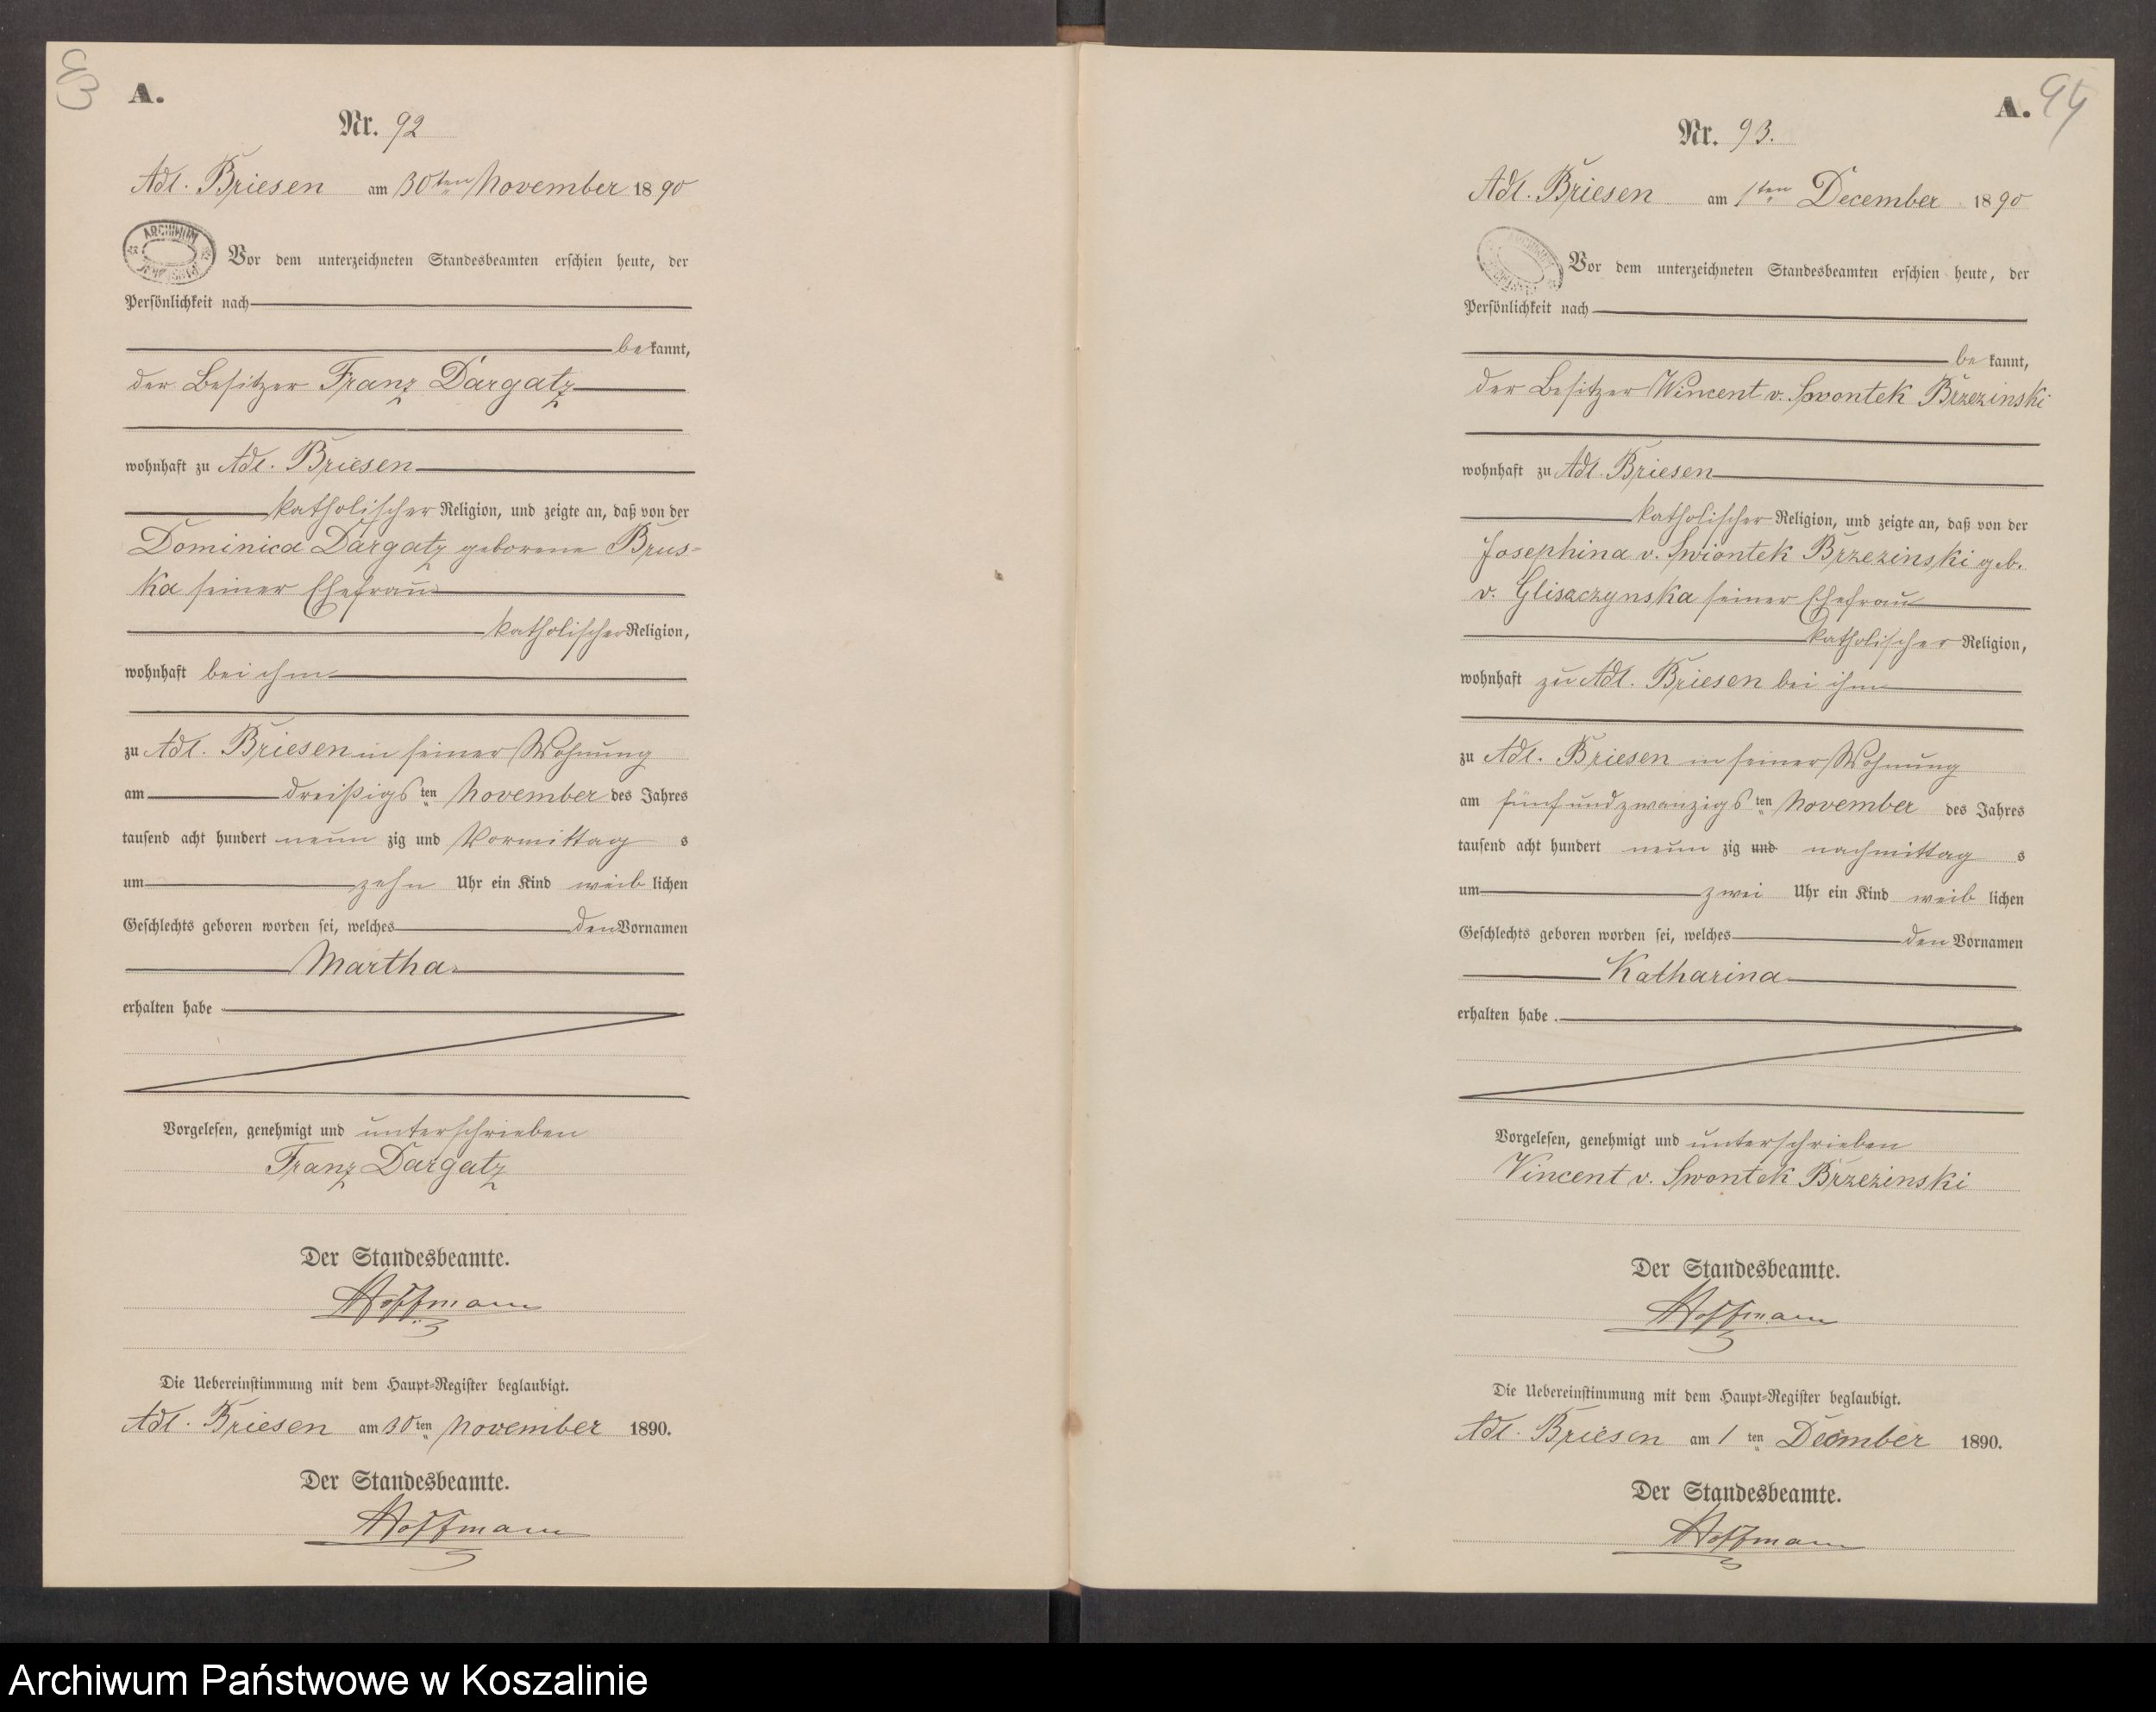 A.
Nr. 92
Adl. Briesen am 30ten November 1890
ARCHIWUM
Vor dem unterzeichneten Standesbeamten erschien heute, der
Persönlichkeit nach
bekannt,
der Besitzer Franz Dargatz
wohnhaft zu Adl. Briesen
katholischer Religion, und zeigte an, daß von der
Dominica Dargatz geborene Brus-
ka seiner Ehefrau
katholischer Religion,
wohnhaft bei ihm
zu Adl. Briesen in seiner Wohnung
am dreißigsten November des Jahres
tausend acht hundert neunzig und Vormittags
um zehn Uhr ein Kind weiblichen
Geschlechts geboren worden sei, welches den Vornamen
Martha
erhalten habe
Vorgelesen, genehmigt und unterschrieben
Franz Dargatz
Der Standesbeamte.
Hoffmann
Die Uebereinstimmung mit dem Haupt-Register beglaubigt.
Adl. Briesen am 30ten November 1890.
Der Standesbeamte.
Hoffmann
A. 94
Nr. 93.
Adl. Briesen am 1ten December 1890
Vor dem unterzeichneten Standesbeamten erschien heute, der
Persönlichkeit nach
bekannt,
der Besitzer Wincent v. Swontek Brzezinski
wohnhaft zu Adl. Briesen
katholischer Religion, und zeigte an, daß von der
Josephina v. Swiontek Brzezinski geb.
v. Glisaczynska seiner Ehefrau
katholischer Religion,
wohnhaft zu Adl. Briesen bei ihm
zu Adl. Briesen in seiner Wohnung
am fünfundzwanzigsten November des Jahres
tausend acht hundert neunzig und nachmittags
um zwei Uhr ein Kind weiblichen
Geschlechts geboren worden sei, welches den Vornamen
Katharina
erhalten habe.
Vorgelesen, genehmigt und unterschrieben
Vincent v. Swontek Brzezinski
Der Standesbeamte.
Hoffmann
Die Uebereinstimmung mit dem Haupt-Register beglaubigt.
Adl. Briesen am 1ten December 1890.
Der Standesbeamte.
Hoffmann
Archiwum Państwowe w Koszalinie